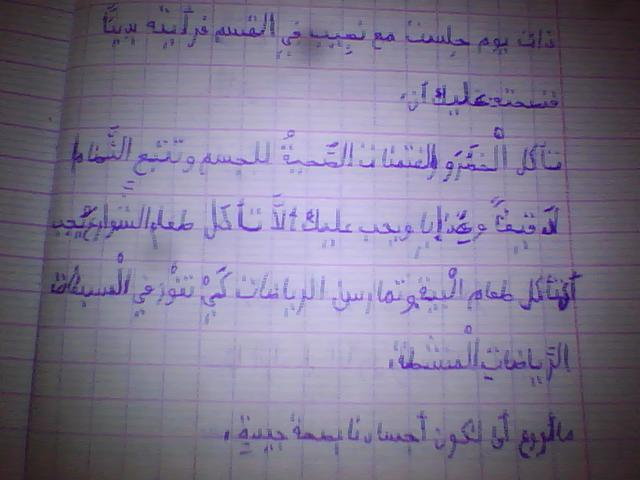 ذات يوم جلست مع نصيب في القسم فرأيته بدينًا
فنصحته عليك أن:
تأكل الْخضر و المنتجات الصَّحيةُ للجسم وتتبع النَّظام
ويجب عليك ألاَّ تأكل طعام الشَّوارع يجب
أن تأكل طعام الْبيت وتمارس الرياضات كَيْ تفوْز في الْمسابقات
الرَّياضاتِ الْمنشطة.
ما أروع أن تكون أجسادنا بصحة جيدةٍ.